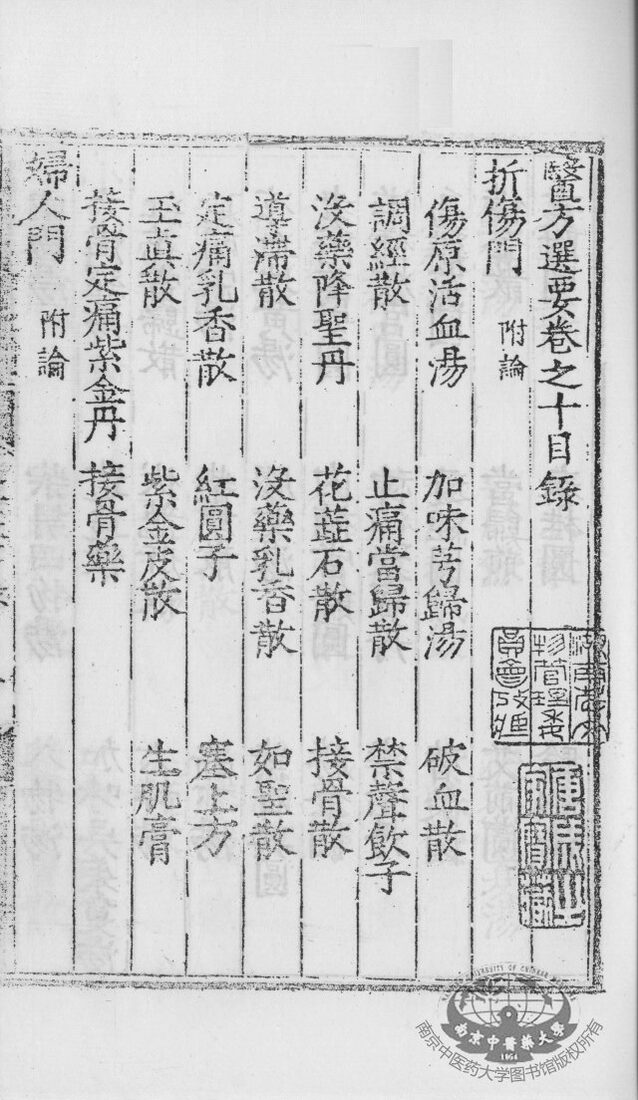 醫方選要卷之十目錄
折傷門 附論
傷原活血湯 加味芎歸湯 破血散
調經散 止痛當歸散 禁聲飲子
沒藥降聖丹 花蕋石散 接骨散
導滯散 沒藥乳香散 如聖散
定痛乳香散 紅圓子 塞上方
玉真散 紫金皮散 生肌膏
接骨定痛紫金丹 接骨藥
婦人門 附論
南京中醫藥大學
1954
南京中医药大学图书馆版权所有